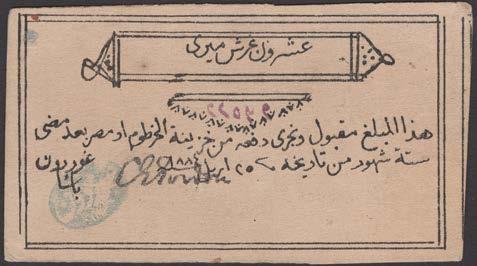 عشرون غرش ميري
هذا المبلغ مقبول وتجرى دفعه من خزينة الخرطوم او مصر بعد مضى
ستة شهور من تاريخه ٢٥ ابريل ١٨٨٤
غوردون
باشا